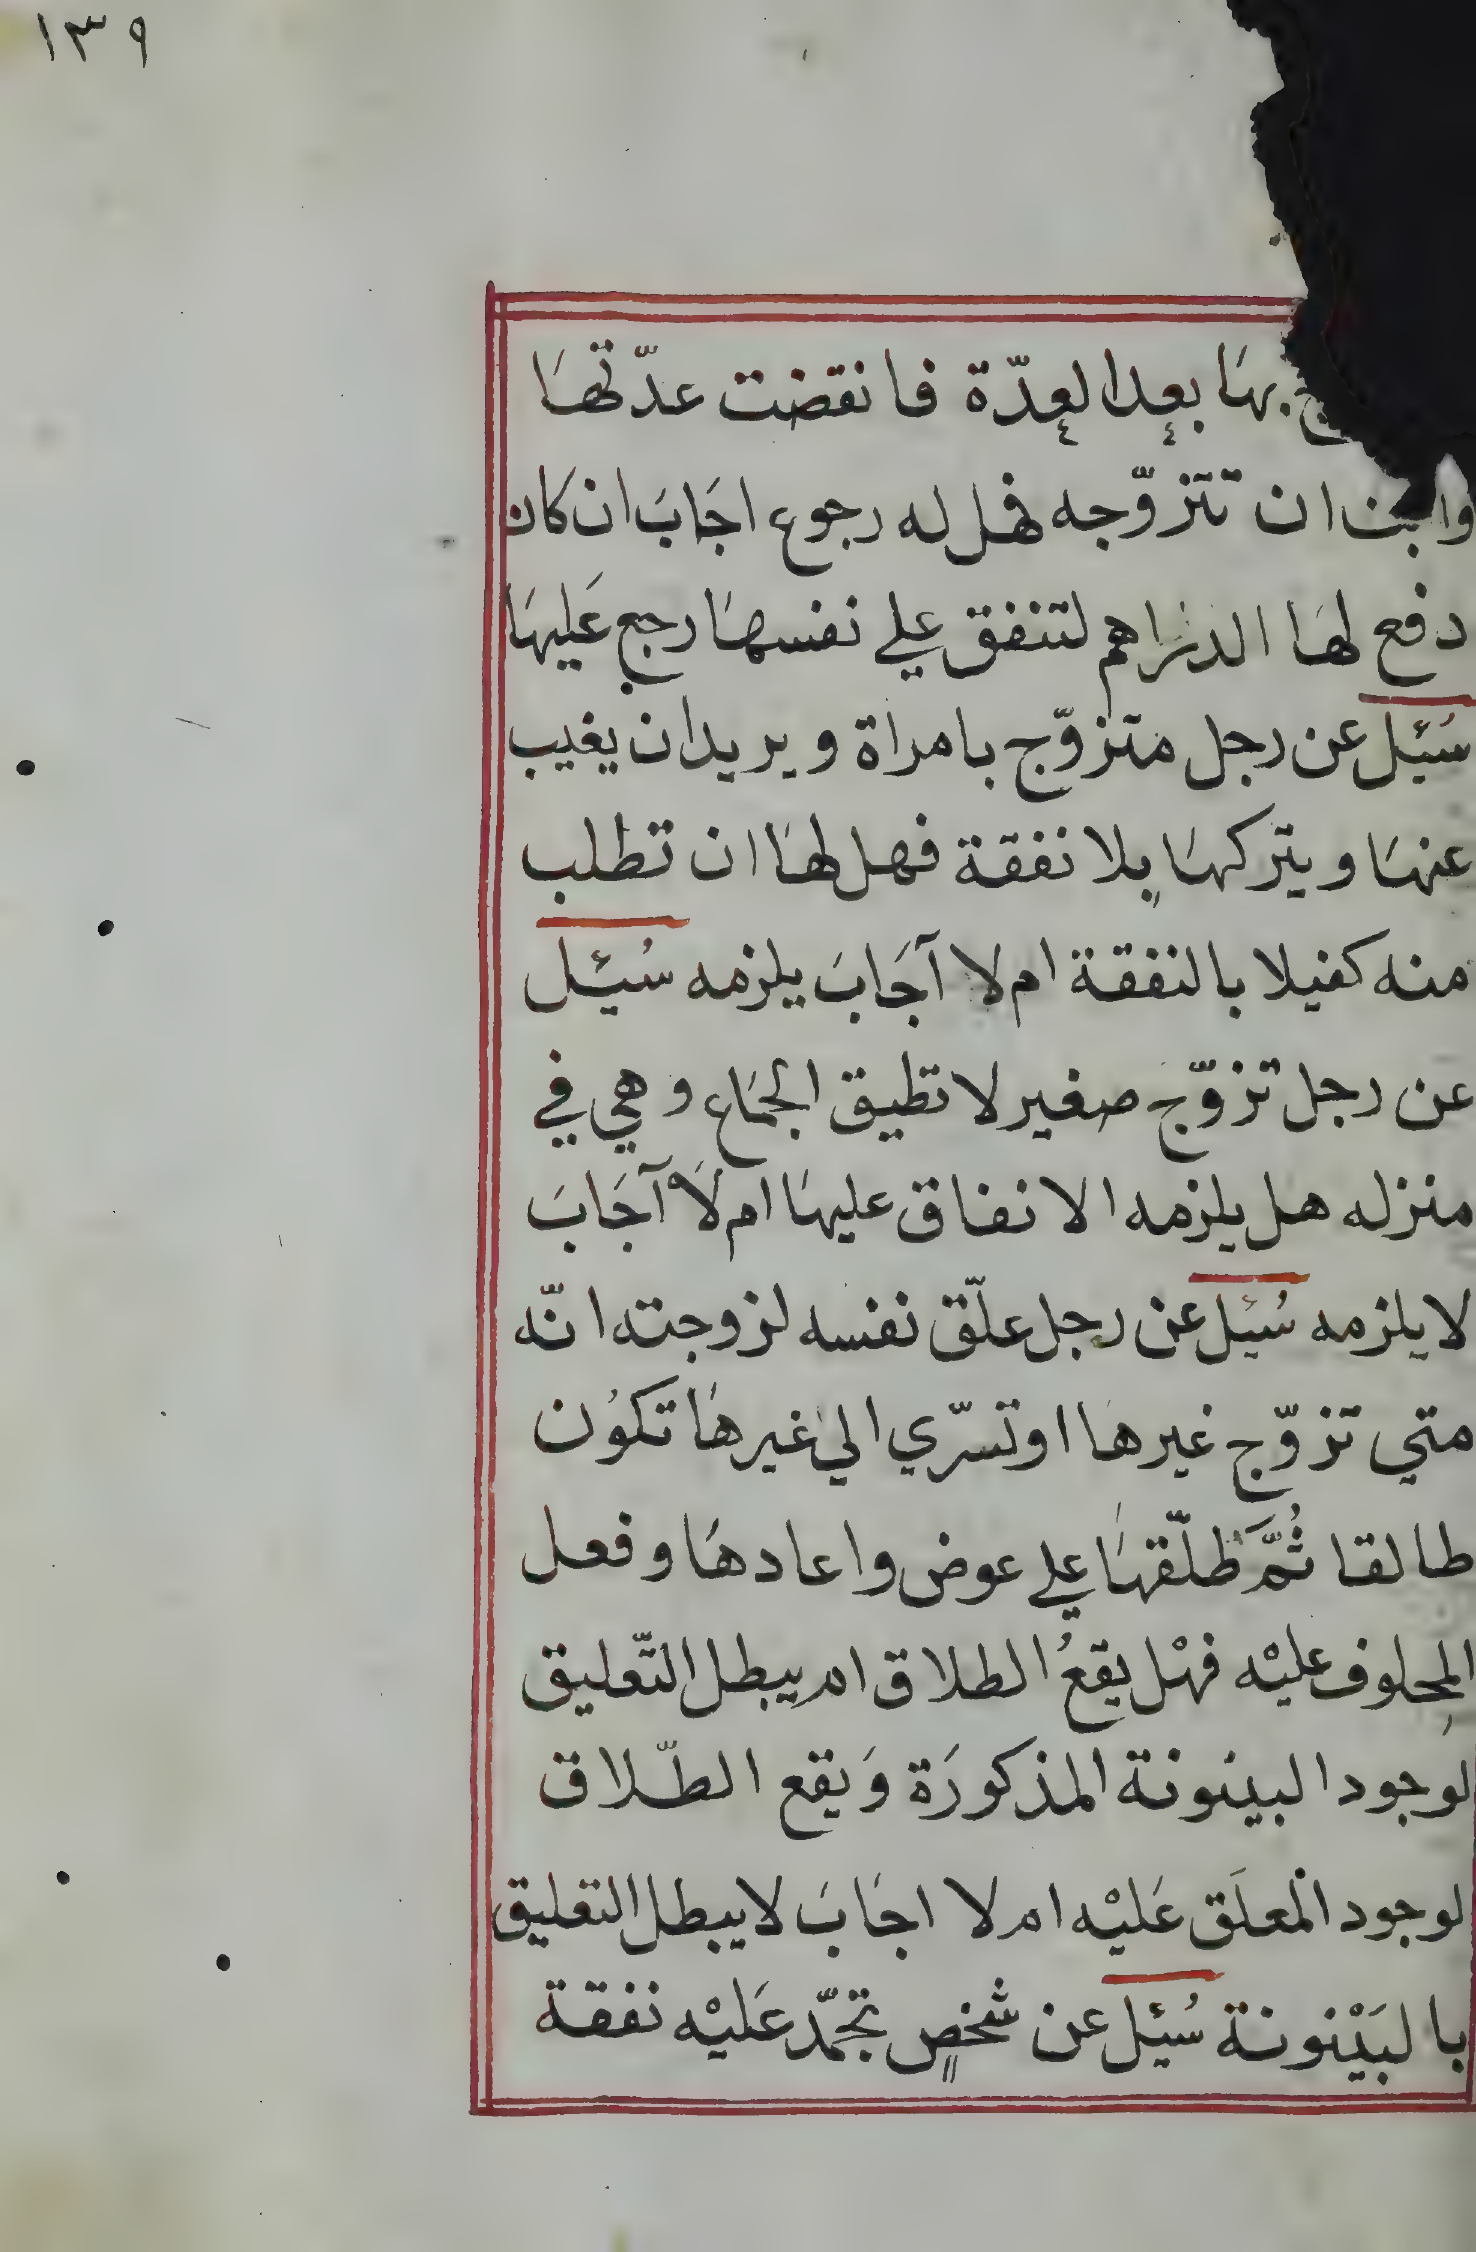 ١٣٩
بهَا بعد العدّة فانقضت عدّتهَا
ان تتزوّجه فهل له رجوع اجَابَ ان كان
دفع لهَا الدرَاهم لتنفق علي نفسهَا رجع عَليهَا
سُئل عن رجل متزوّج بامراة ويريد ان يغيب
عنهَا ويتركهَا بلا نفقة فهل لهَا ان تطلب
منه كفيلا بالنفقة ام لا آجَابَ يلزمه سُئل
عن رجل تزوّج صغير لا تطيق الجمَاع وهي في
منزله هل يلزمه الانفاق عليهَا ام لَا آجَابَ
لا يلزمه سُئل عن رجل علّق نفسه لزوجته انّه
متي تزوّج غيرها او تسرّي الي غيرهَا تكوُن
طالقا ثُمَّ طلّقهَا علي عوض واعادهَا وفعل
المحلوف عليْه فهْل يقعُ الطلاق ام يبطل التّعليق
لوجود البينونة المذكورَة وَيقع الطّلاق
لوجود المْعلَق عَليْه ام لا اجَابَ لا يبطل التعليق
بالبَيْنونة سُئل عن شخصٍ تجمّد عَليْه نفقة